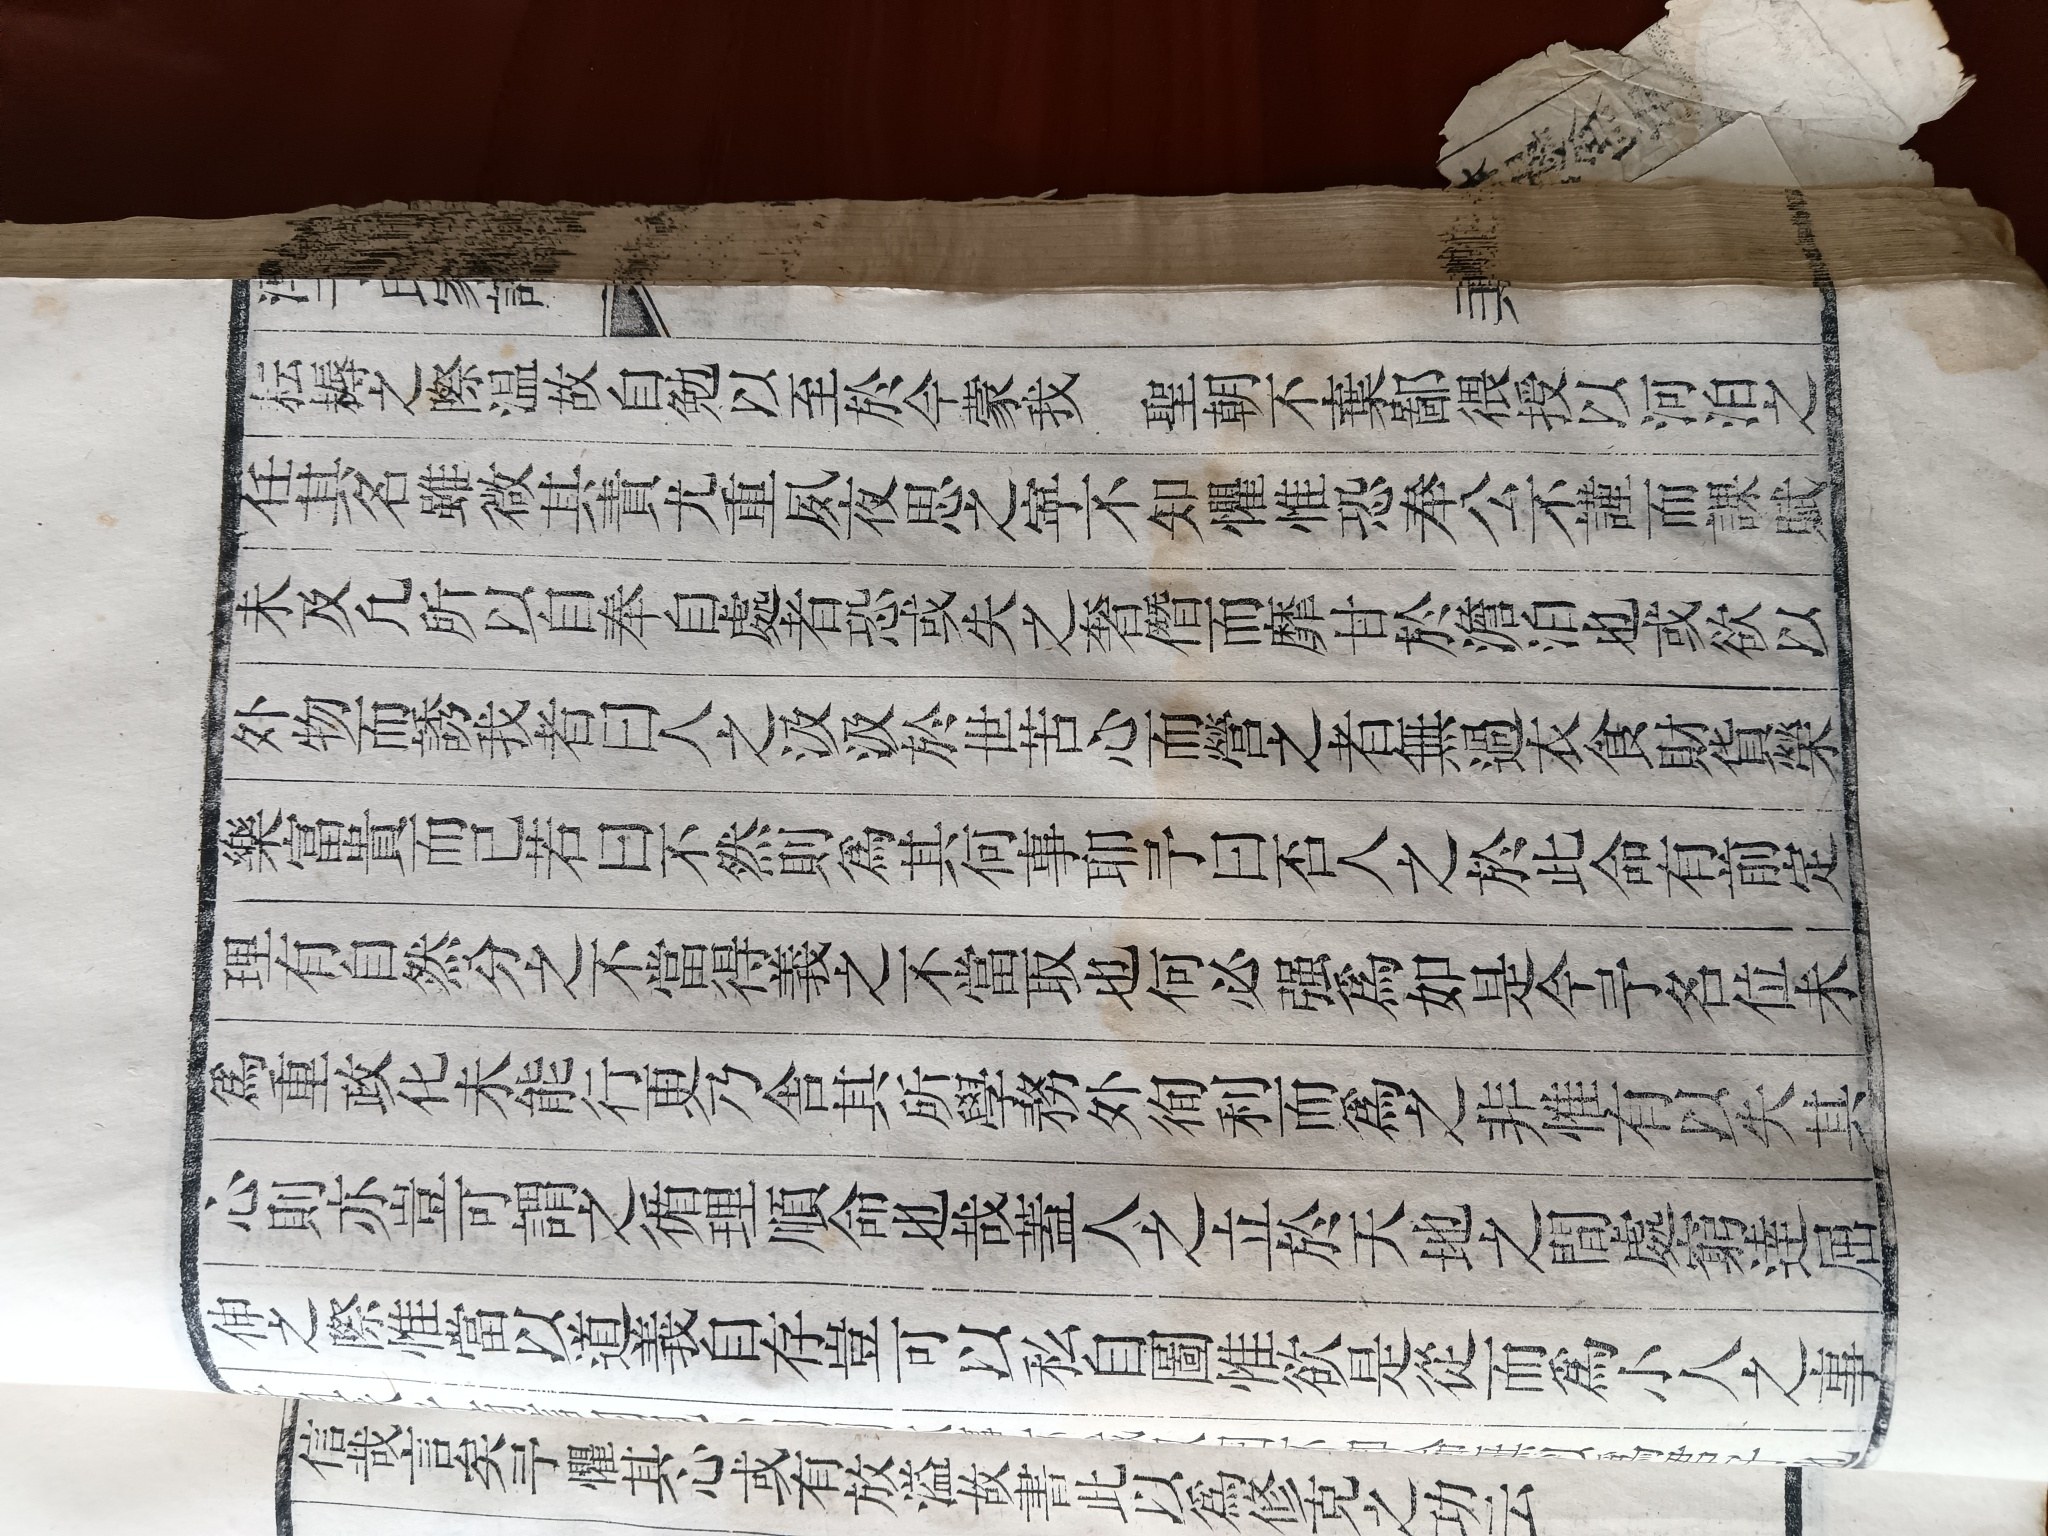 耘耨之際溫故自勉以至於今蒙我　聖朝不棄鄙猥授以河泊之
任其名雖微其責尤重夙夜思之寧不知懼惟恐奉公不謹而課賦
未及凡所以自奉自處者恐或失之奢僭而靡甘於澹泊也或欲以
外物而誘我者曰人之汲汲於世苦心而營之者無過衣食財貨榮
樂富貴而已若曰不然則爲其何事耶予曰否人之於此命有前定
理有自然分之不當得義之不當取也何必强爲如是今予名位未
爲重政化未能行更乃舍其所學務外徇利而爲之非惟有以失其
心則亦豈可謂之循理順命也哉蓋人之立於天地之間處窮達屈
伸之際惟當以道義自存豈可以私自圖惟欲是從而爲小人之事
信哉言矣予懼其心或有放溢故書此以爲修克之功云